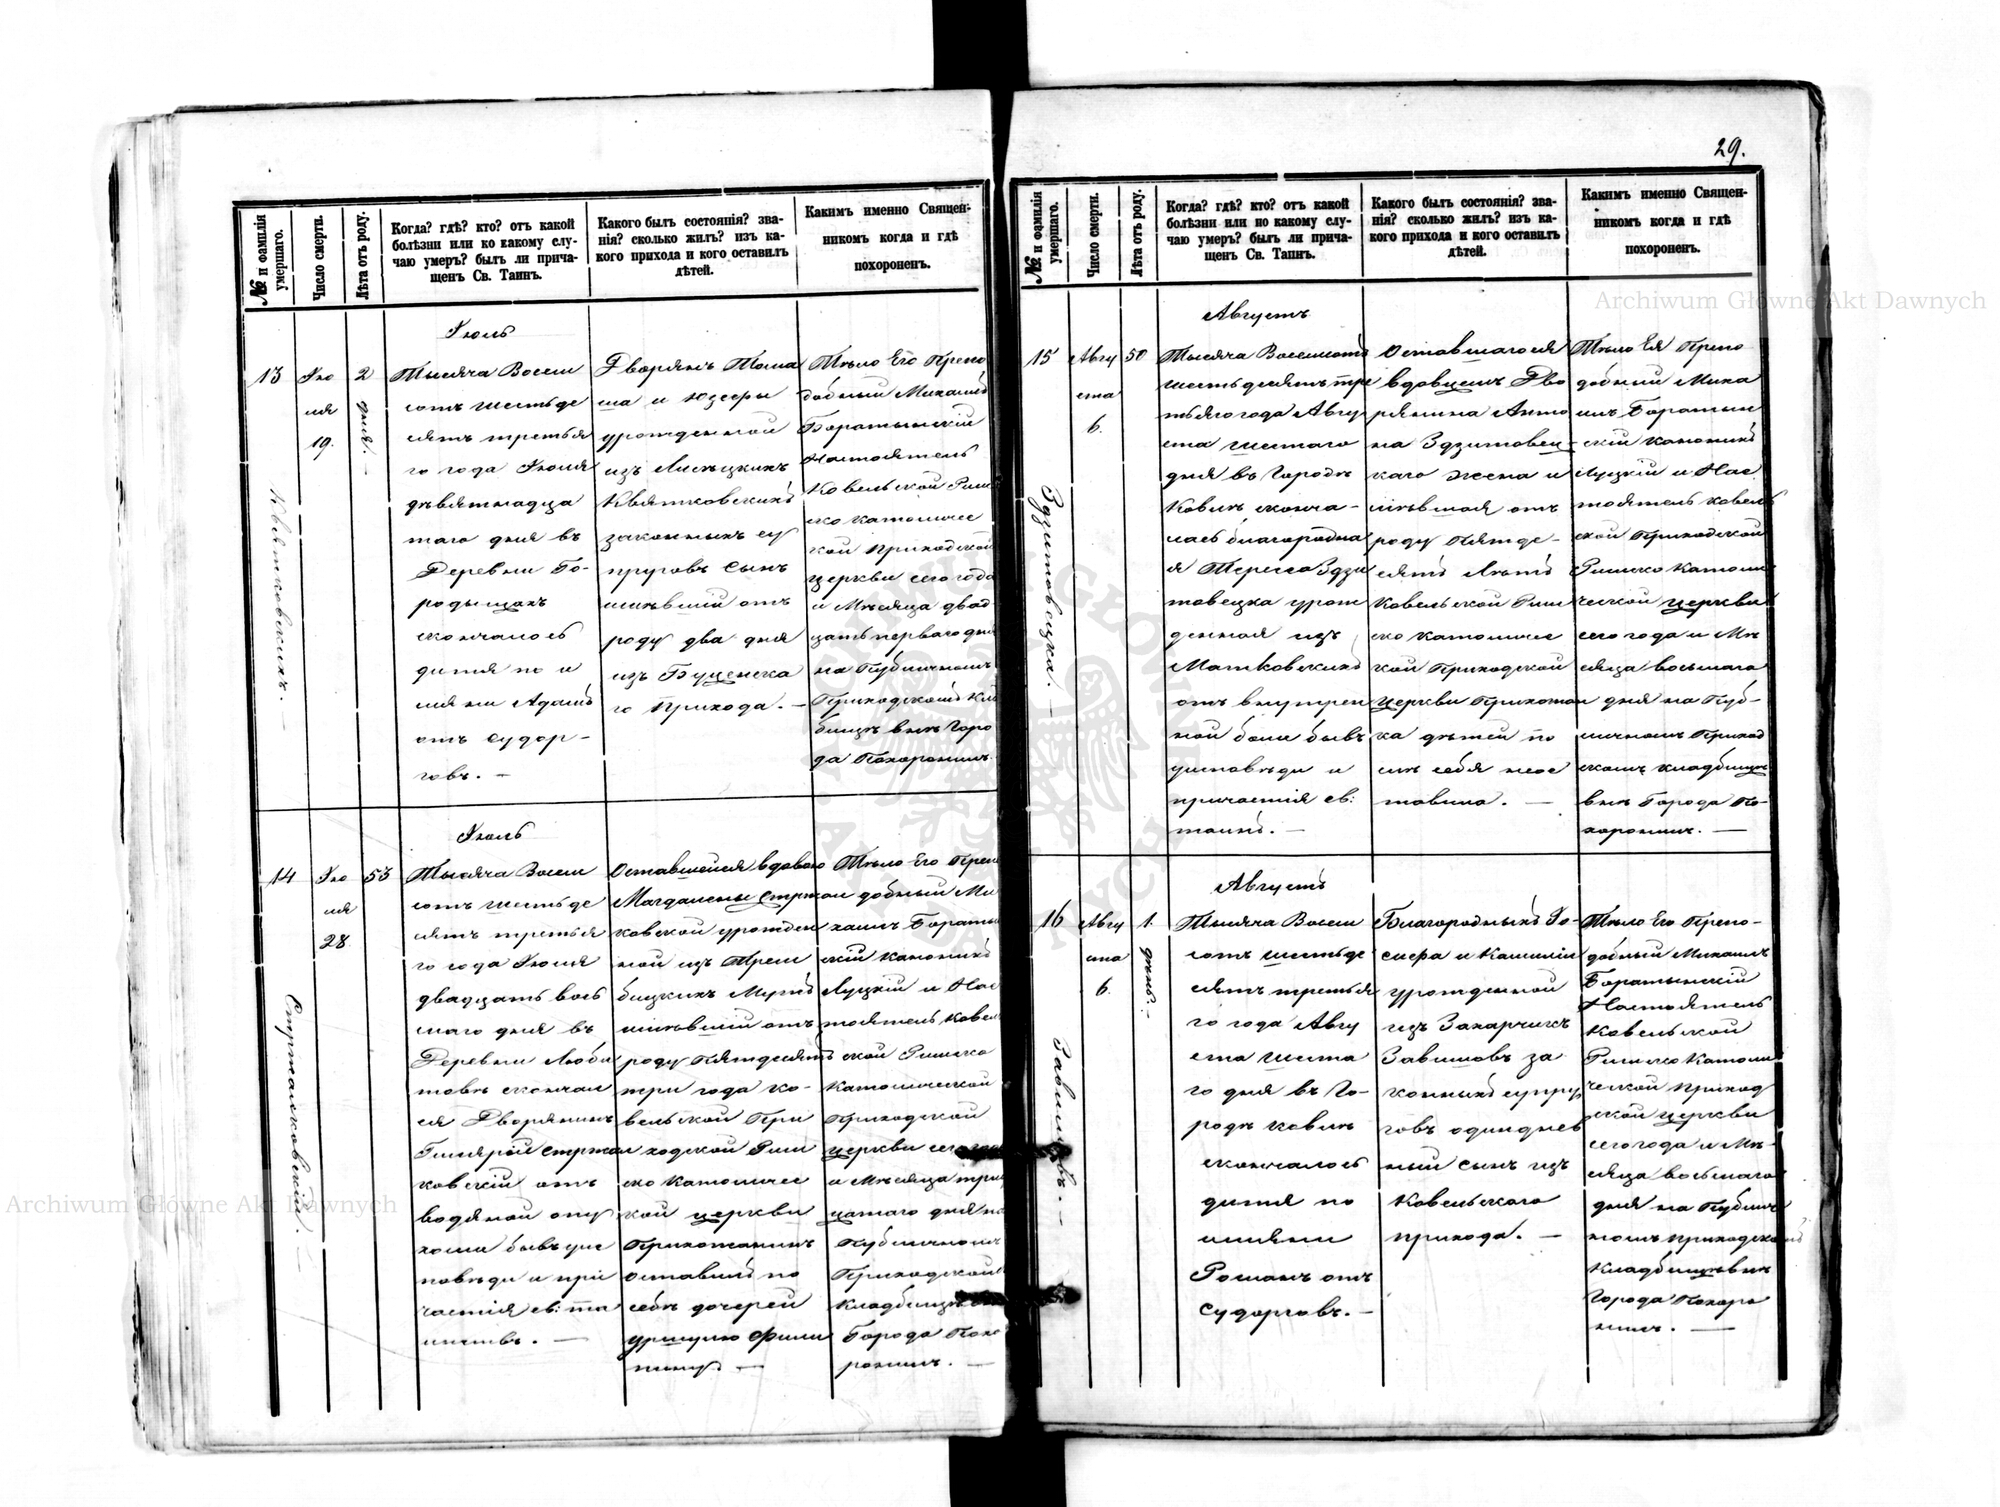 29.
№ и фамилія умершаго.
Число смерти.
Лѣта отъ роду.
Когда? гдѣ? кто? отъ какой
болѣзни или ко какому слу-
чаю умеръ? былъ ли прича-
щенъ Св. Таинъ.
Какого былъ состоянія? зва-
нія? сколько жилъ? изъ ка-
кого прихода и кого оставилъ
дѣтей.
Какимъ именно Священ-
никомъ когда и гдѣ
похороненъ.
13
Квятковскихъ. —
Ію
ля
19.
2
дня. —
Іюль
Тысяча Восем
сотъ шестьде
сятъ третья
го года Іюля
дѣвятнадца
таго дня въ
Деревни Го-
родыщахъ
скончалось
дитя по и
мѣни Адамъ
отъ судор-
говъ. —
Дворянъ Тома
ша и Юзефы
урожденной
изъ
Квятковскихъ
законныхъ су
пруговъ Сынъ
имѣвшій отъ
роду два дня
изъ Буценска
го Прихода. —
Тѣло Его Препо
добный Михаилъ
Боратынскій
Настоятель
Ковельской Рим
ско Католичес
кой Приходской
церкви сего года
и Мѣсяца двад
цать перваго дня
на Публичномъ
Приходскомъ Кла
бищѣ внѣ Горо
да Похоронилъ.
14
Стржалковскій. —
Ію
ля
28.
53
Іюль
Тысяча Восем
сотъ шестьде
сятъ третья
го года Іюля
двадцать вось
маго дня въ
Деревни Люби
товѣ скончал
ся Дворянинъ
Стржал
ковскій отъ
водяной опу
холи бывъ ис
повѣди и при
частія св: та
инствъ. —
Оставшейся вдовою
Магдалены Стржал
ковской урожден
ной изъ Трем
бицкихъ Мужъ
имѣвшій отъ
роду Пятдесятъ
три года Ко-
вельской При
ходской Рим
ско Католичес
кой церкви
Прихожанинъ
Оставилъ по
себѣ дочерей
Фили
пину —
Тѣло Его Препо
добный Ми
хаилъ Бораты
скій Каноникъ
Луцкій и Нас
тоятель Ковел
ской Римско
Католической
Приходской
церкви сего года
и Мѣсяца трид
цатаго дня на
Публичномъ
Приходскомъ
Кладбищѣ внѣ
Города Похо
ронилъ. —
№ и фамилія умершаго.
Число смерти.
Лѣта отъ роду.
Когда? гдѣ? кто? отъ какой
болѣзни или по какому слу-
чаю умеръ? былъ ли прича-
щенъ Св. Таинъ.
Какого былъ состоянія? зва-
нія? сколько жилъ? изъ ка-
кого прихода и кого оставилъ
дѣтей.
Какимъ именно Священ-
никомъ когда и гдѣ
похороненъ.
15
Здзитовецка. —
Авгу
ста
6.
50
Августъ
Тысяча Восемсотъ
шестьдесятъ тре
тьяго года Авгу
ста шестаго
дня въ Городѣ
Ковлѣ сконча-
лась благородна
я Тереса Здзи
товецка урож
денная изъ
Матковскихъ
отъ внутрен
ной боли бывъ
исповѣди и
причастія св:
таинъ. —
Оставшагося
вдовцемъ Дво
рянина Анто
на Здзитовец-
каго жена и
мѣвшая отъ
роду Пятде-
сятъ Лѣтъ
Ковельской Рим
ско Католичес
кой Приходской
церкви Прихожан
ка дѣтей по
слѣ себя неос
тавила. —
Тѣло Ея Препо
добный Миха
илъ Боратын
скій Каноникъ
Луцкій и Нас
тоятель Ковель
ской Приходской
Римско Католи
ческой церкви
сего года и Мѣ
сяца восьмаго
дня на Пуб-
личномъ Приход
скомъ кладбищѣ
внѣ Города По-
хоронилъ. —
16
Завишовъ. —
Авгу
ста
6.
1.
день. —
Августъ
Тысяча Восем
сотъ шестьде
сятъ третья
го года Авгу
ста шеста
го дня въ Го-
родѣ Ковлѣ
скончалось
дитя по
имѣни
Романъ отъ
судорговъ. —
Благородныхъ Іо-
сифа и Камиліи
урожденной
изъ Захарчикъ
Завишовъ за
конныхъ супру
говъ однодне в
ный Сынъ изъ
Ковельскаго
прихода. —
Тѣло Его Препо-
добный Михаилъ
Боратынскій
Настоятель
Ковельской
Римско Католи
ческой Приход
ской церкви
сего года и Мѣ-
сяца восьмаго
дня на Публич
номъ приходскомъ
Кладбищѣ внѣ
Города Похоро
нилъ. —
Archiwum Główne Akt Dawnych
Archiwum Główne Akt Dawnych